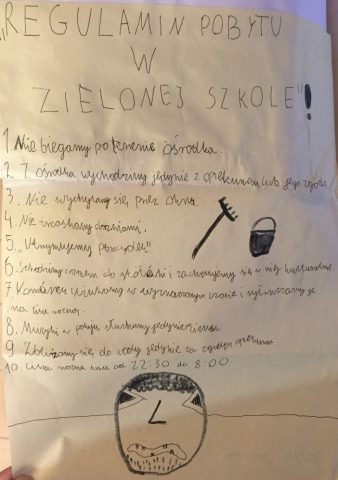 „REGULAMIN POBYTU
W
ZIELONEJ SZKOLE"!
1. Nie biegamy po terenie ośrodka.
2. Z ośrodka wychodzimy jedynie z opiekunem lub jego zgodą
3. Nie wychylamy się przez okna.
4. Nie trzaskamy drzwiami.
5. „Utrzymujemy porządek"
6. Schodzimy razem do stołówki i zachowujemy się w niej kulturalnie
7 Komórek używamy w wyznaczonym czasie i wyłączamy je
na ciszę nocną.
8. Muzyki w pokoju słuchamy jedynie cicho.
9 Zbliżamy się do wody jedynie za zgodą opiekuna
10 cisza nocna trwa od 22:30 do 8:00